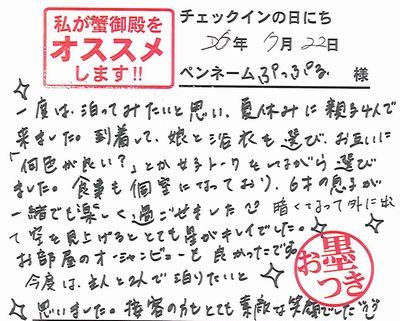 私が蟹御殿を
オススメ
します!!
チェックインの日にち
26年 7月 22日
ペンネーム ぷっぷる 様
一度は、泊ってみたいと思い、夏休みに親子4人で
来ました。到着して、娘と浴衣を選び、お互いに
「何色が良い?」とか女子トークをしながら選び
ました。食事も個室になっており、6才の息子が
一緒でも楽しく過ごせました 暗くなって外に出
て空を見上げるととても星がキレイでした。
お部屋のオーシャンビューも良かったです。
今度は、主人と2人で泊りたいと
思いました。接客の方もとても素敵な笑顔でした
お墨つき